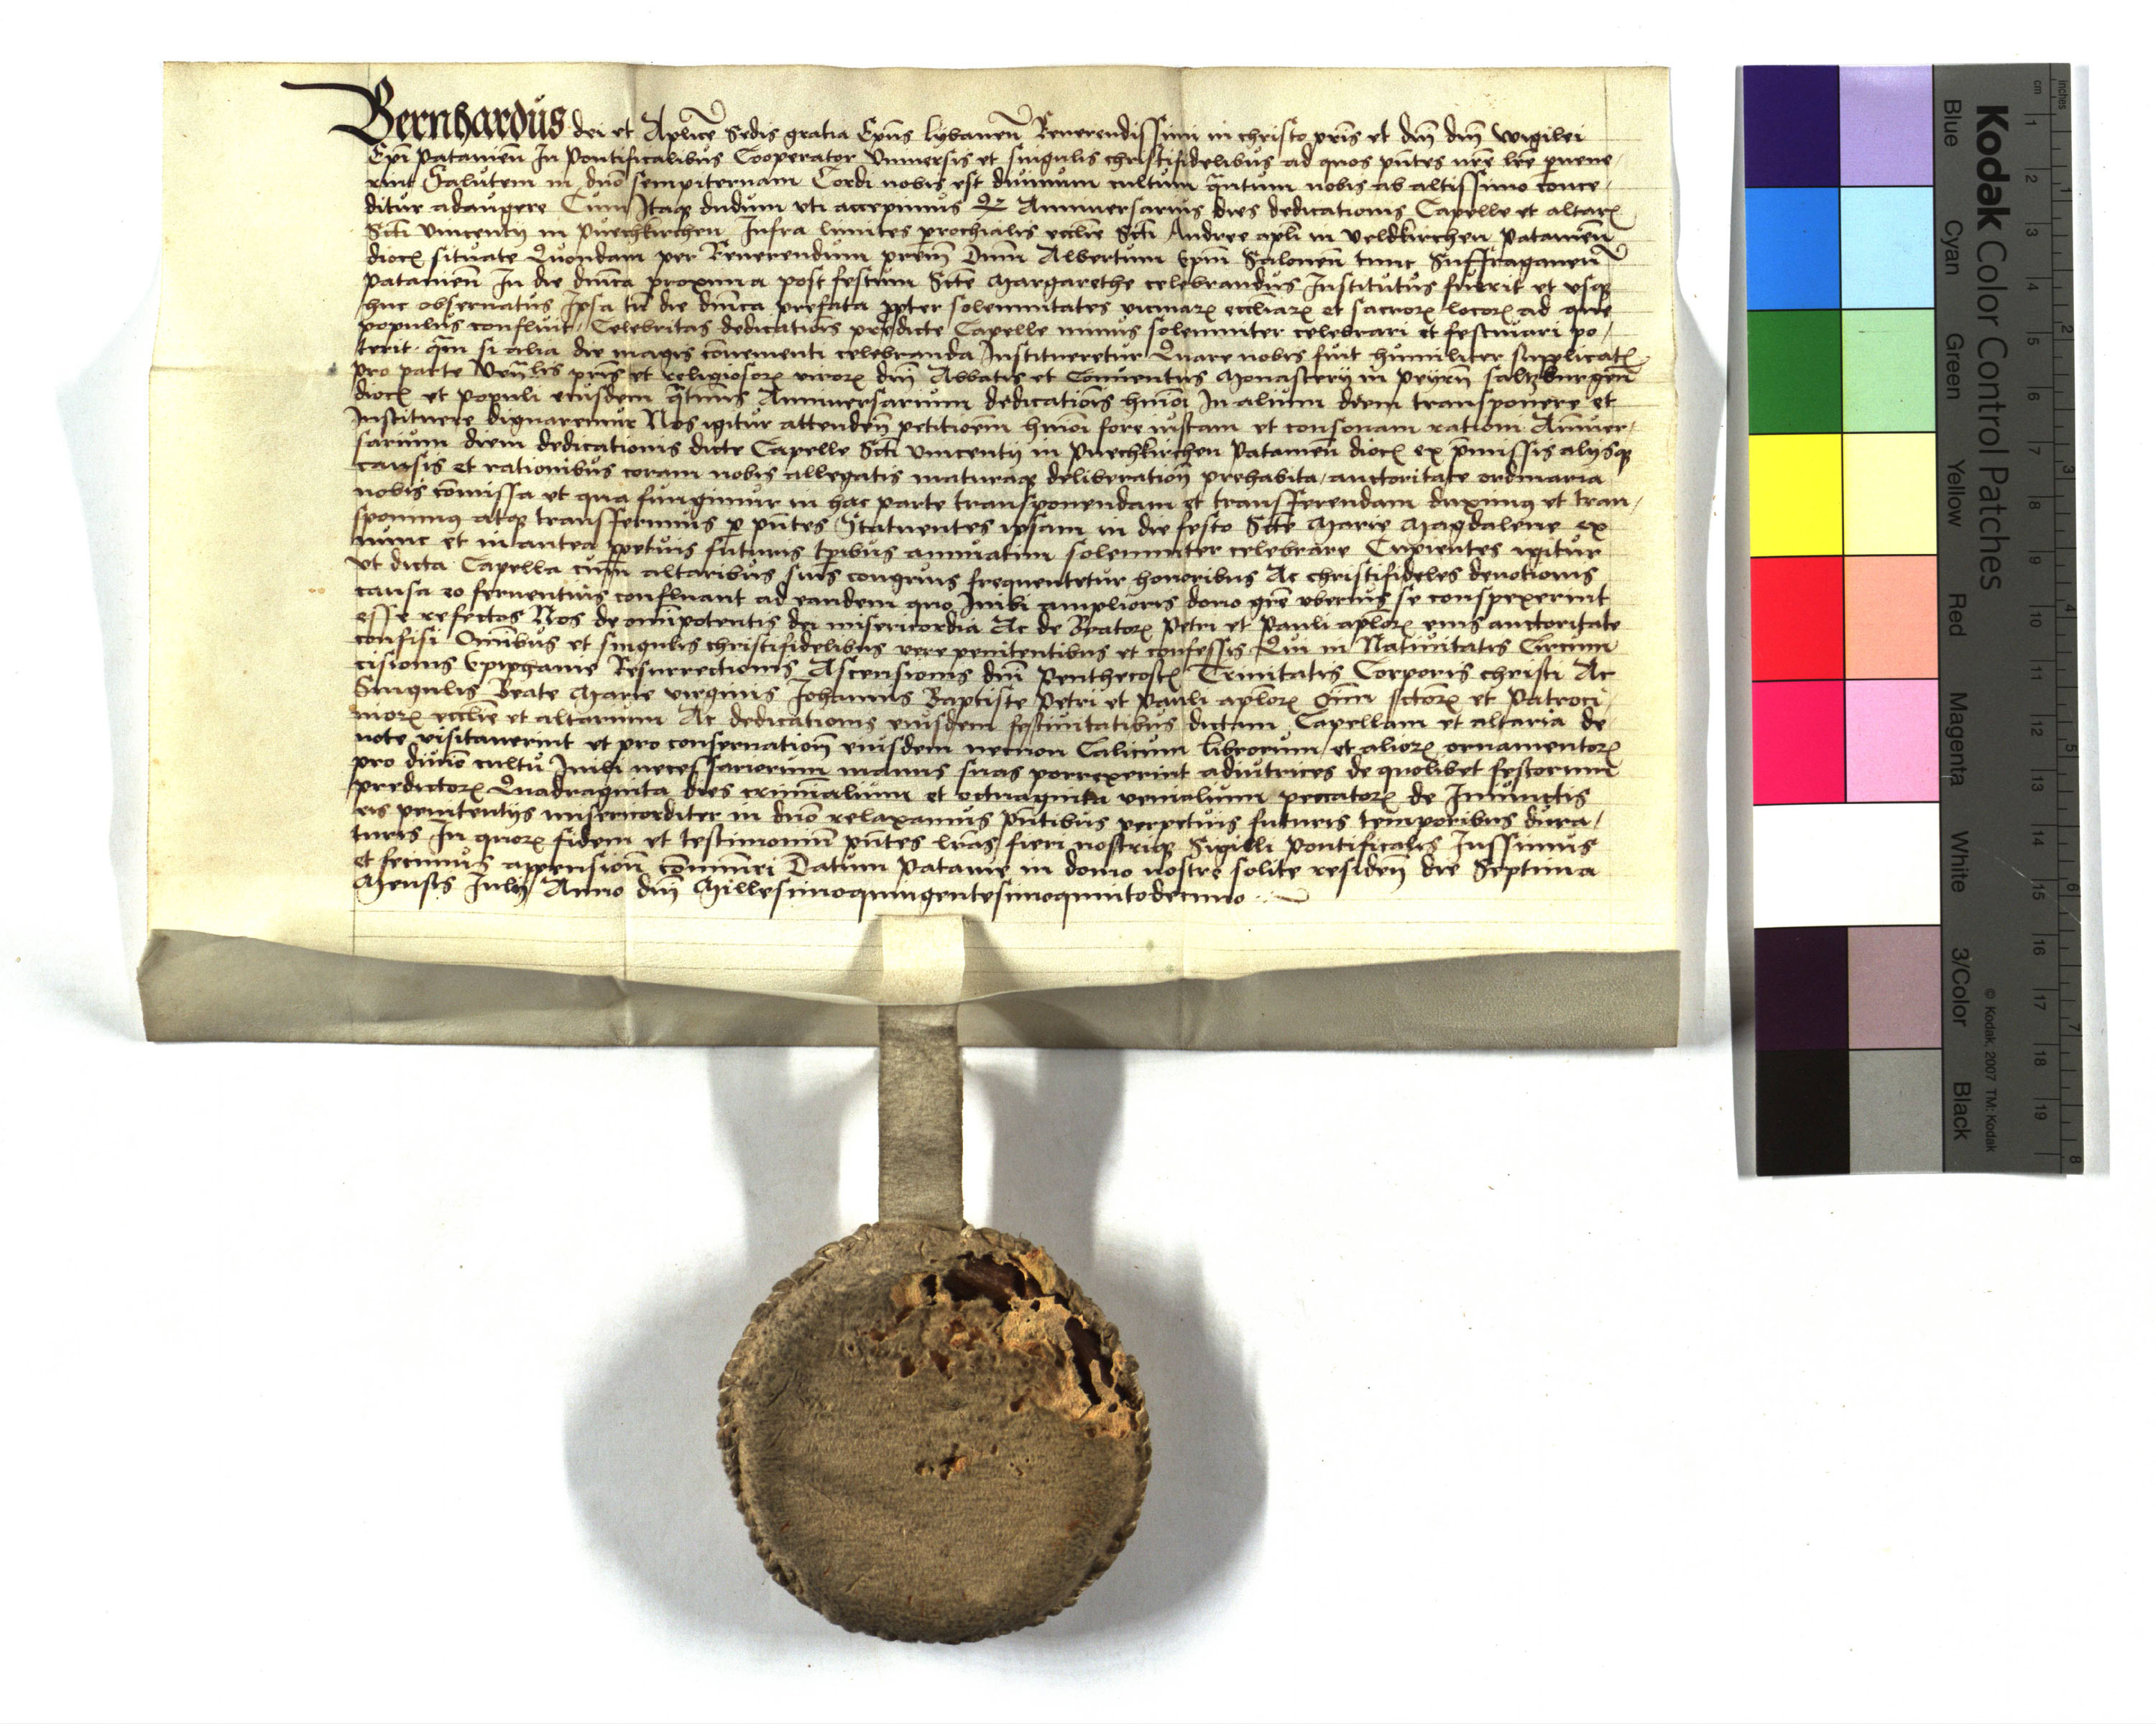 Bernhardus dei et Aplice Sedis gratia Epus lybaneñ Reuerendissimi in christo pris et dni dni wigilei
Epi Patauieñ In Pontificalibus Cooperator Vniuersis et singulis christifidelibus ad quos pntes nre lre puene/
rint Salutem in dno sempiternam Cordi nobis est diuinum cultum qantum nobis ab altissimo conce/
ditur adaugere Cum Itaq dudum vti accepimus qz Anniuersarius dies dedicationis Capelle et altarꝝ
Scti Vincentij in Puechkirchen Infra limites prochialis ecclie Scti Andree apli in Veldkirchen Patauieñ
dioc situate Quondam per Reuerendum prem Dnm Albertum Epm Saloneñ tunc Suffraganeuͫ
Patauieñ In die dnica proxima post festum Scte Margarethe celebrandus Institutus fuerit et vsq
huc obseruatus Ipsa tn die dnica prefata ppter solemnitates vicinaꝝ eccliaꝝ et sacroꝝ locoꝝ ad que
populus confluit / Celebritas dedicatiois predicte Capelle minus solemniter celebrari et festiuari po/
terit qam si alia die magis conuenienti celebranda Institueretur Quare nobis fuit humiliter supplicatꝫ
pro parte Venlis pris et religiosoꝝ viroꝝ dni Abbatis et Conuentus Monasterij in Peyrñ saltzburgeñ
dioc et populi eiusdem qatinus Anniuersarium dedicatiois hmoi In alium diem transponere et
Instituere dignaremur Nos igitur attendeñ petitioem hmoi fore iustam et consonam rationi Anniuer/
sarium diem dedicationis dicte Capelle Scti Vincentij in Puechkirchen Patauieñ dioc ex pmissis alijsq
causis et rationibus coram nobis allegatis maturaq deliberatioñ prehabita / auctoritate ordinaria
nobis comissa et qua fungimur in hac parte transponendam et transferendam duximus et tran/
sponimus atq transferimus p pntes Statuentes ipsam in die festo Scte Marie Magdalene ex
nunc et in antea ppetuis futuris tpibus annuatim solemniter celebrare Cupientes igitur
vt dicta Capella cum altaribus suis congruis frequentetur honoribus Ac christifideles deuotionis
causa eo feruentius confluant ad eandem quo Inibi amplioris dono gre vberius se conspexerint
esse refectos Nos de omnipotentis dei misericordia Ac de Beatoꝝ Petri et Pauli aploꝝ eius auctoritate
confisi Omnibus et singulis christifidelibus vere penitentibus et confessis Qui in Natiuitatis Circum
cisionis Epiphanie Resurrectionis Ascensionis dni Penthecostꝫ Trinitatis Corporis christi Ac
Singulis Beate Marie virginis Johannis Baptiste Petri et Pauli aploꝝ oim sctoꝝ et Patroci/
nioꝝ ecclie et altarium Ac dedicationis eiusdem festiuitatibus dictam Capellam et altaria de
uote visitauerint et pro conseruatioñ eiusdem necnon Calicum librorum et alioꝝ ornamentoꝝ
pro diuino cultu Inibi necessariorum manus suas porrexerint adiutrices de quolibet festorum
predictoꝝ Quadraginta dies criminalium et octuaginta venialium peccatoꝝ de Iniunctis
eis penitentijs misericorditer in dno relaxamus pntibus perpetuis futuris temporibus dura/
turis In quoꝝ fidem et testimonium pntes lras fieri nostriq Sigilli Pontificalis Jussimus
et fecimus appensioñ comuniri Datum Patauie in domo nostre solite resideñ die Septima
Mensis Julij Anno dni Millesimoquingentesimoquintodecimo
Kodak Color Control Patches
Blue Cyan Green Yellow Red Magenta White 3/Color Black
© Kodak, 2007 TM: Kodak
cm 1 2 3 4 5 6 7 8 9 10 11 12 13 14 15 16 17 18 19
inches 1 2 3 4 5 6 7 8